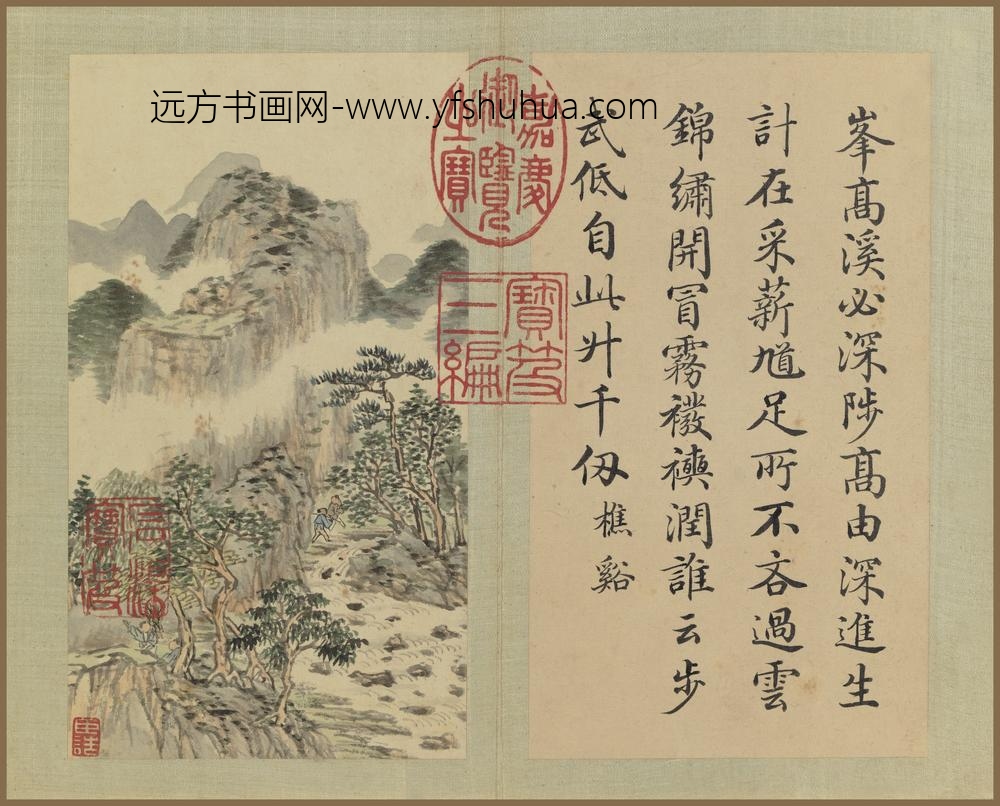 远方书画网-www.yfshuhua.com
峯髙溪必深陟髙由深進生
計在采薪馗足所不吝過雲
錦繡開冒霧襏襫潤誰云步
武低自此升千仞
樵谿
嘉慶御覽之寶
寶笈三編
石渠寶笈